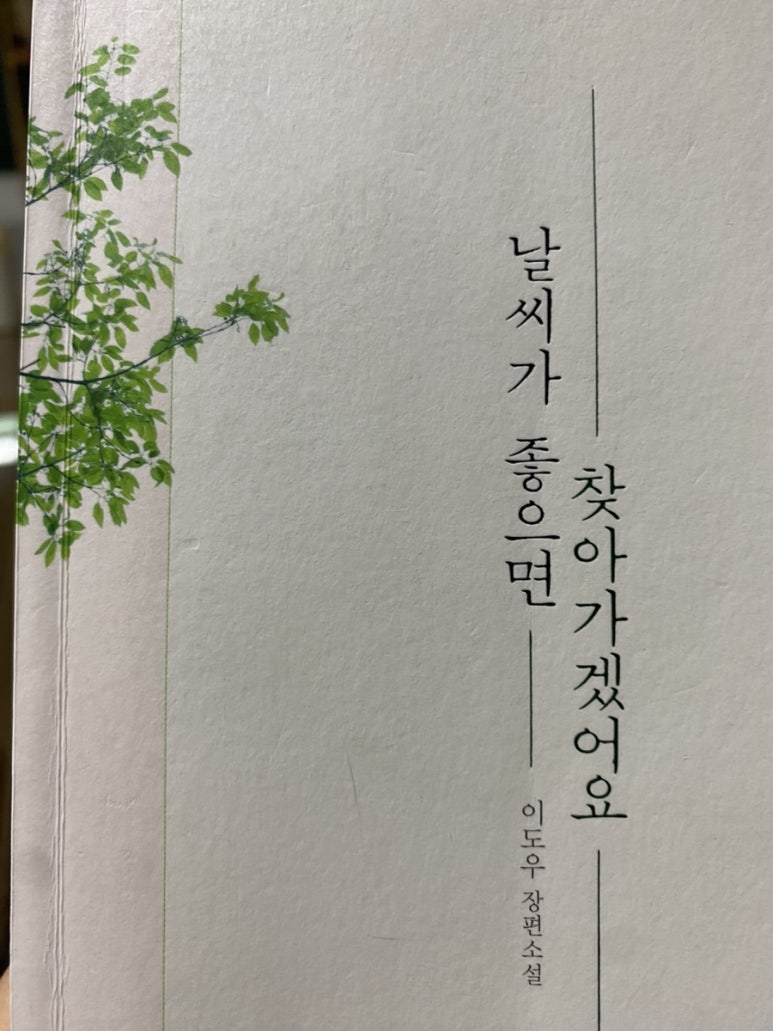 날씨가 좋으면
찾아가겠어요
이도우 장편소설